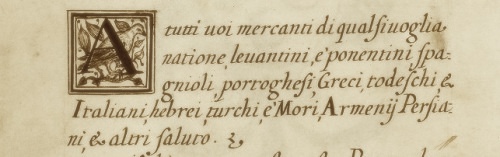 A tutti uoi mercanti di qualsiuoglia
natione, leuantini, è ponentini spa-
gnioli, portoghesi, Greci, todeschi, &
Italiani, hebrei, turchi, è Mori, Armenij Persia-
ni, & altri saluto.